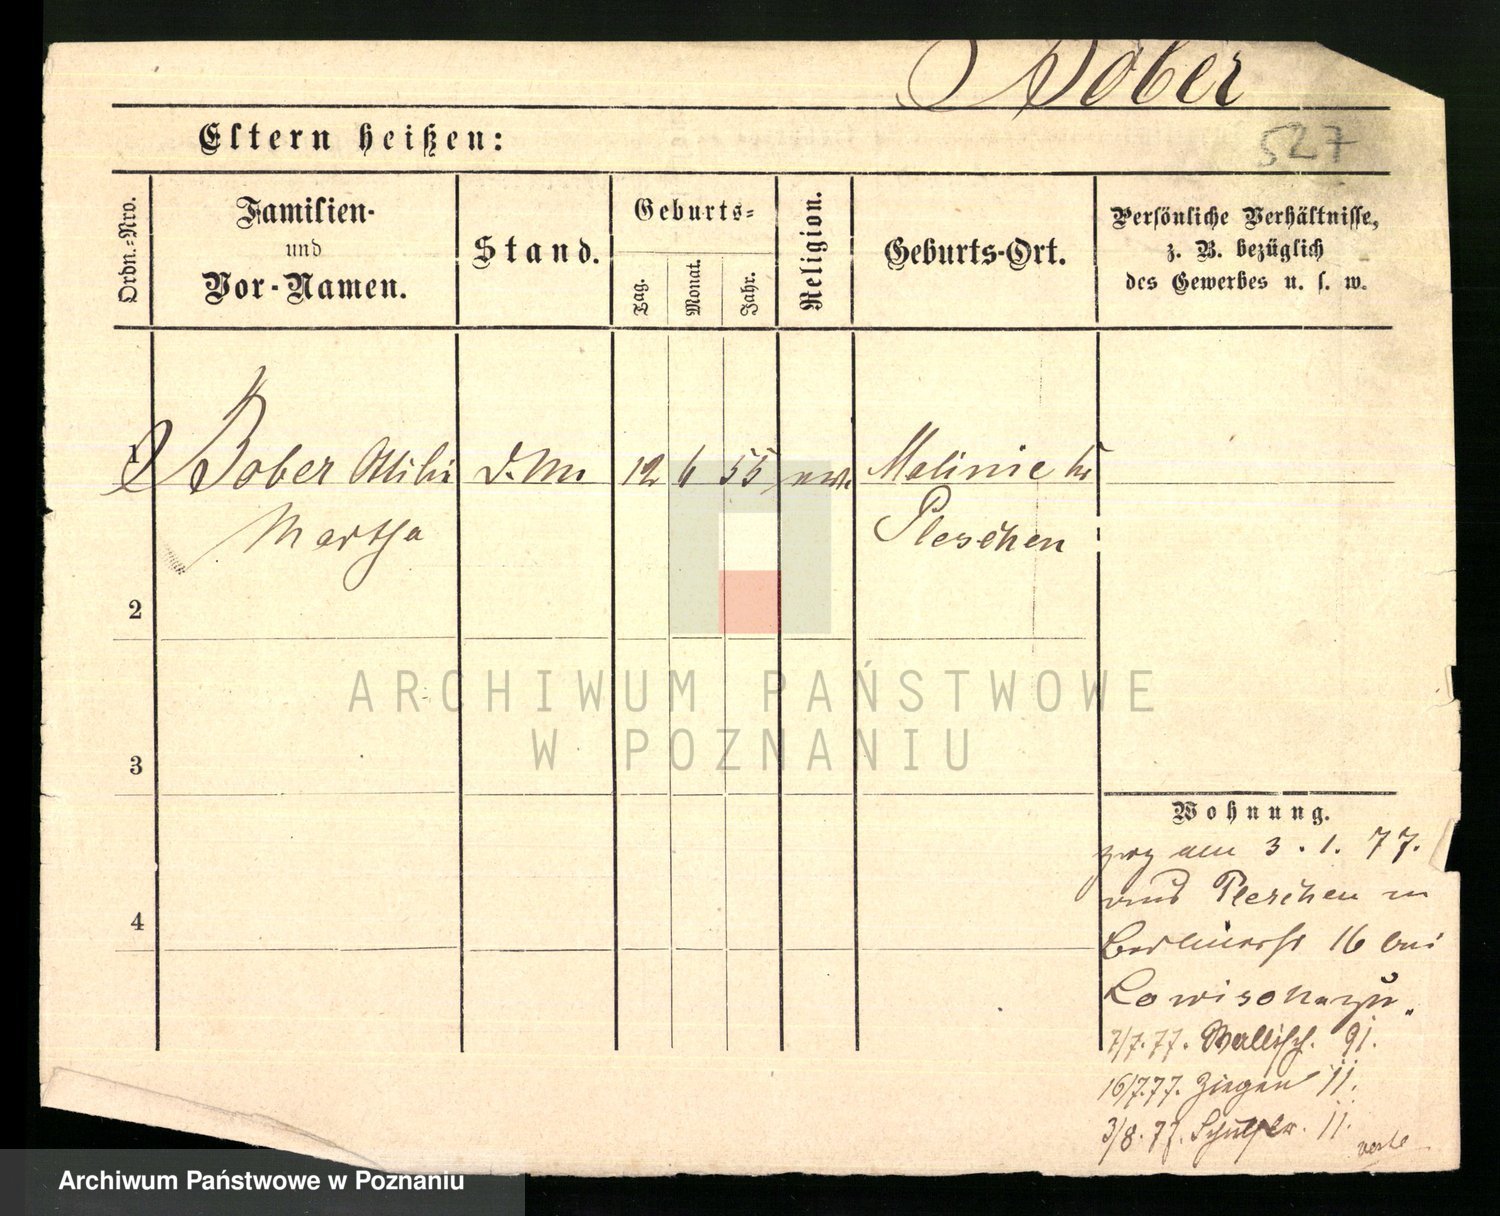 Bober
527
Eltern heißen:
Ordn.-Nro.
Familien-
und
Vor-Namen.
Stand.
Geburts-
Tag.
Monat.
Jahr.
Religion.
Geburts-Ort.
Persönliche Verhältnisse,
z. B. bezüglich
des Gewerbes u. s. w.
1 Bober 12 6 55 Malinie
Martha Pleschen
2
3
4
Wohnung.
am 3. 1. 77.
aus Pleschen in
Berlinerst 16 bei
7/7. 77. Wallisch. 91.
16/7.77. Ziegen 11.
3/8. 77. Schulstr. 11.
ARCHIWUM PAŃSTWOWE
W POZNANIU
Archiwum Państwowe w Poznaniu